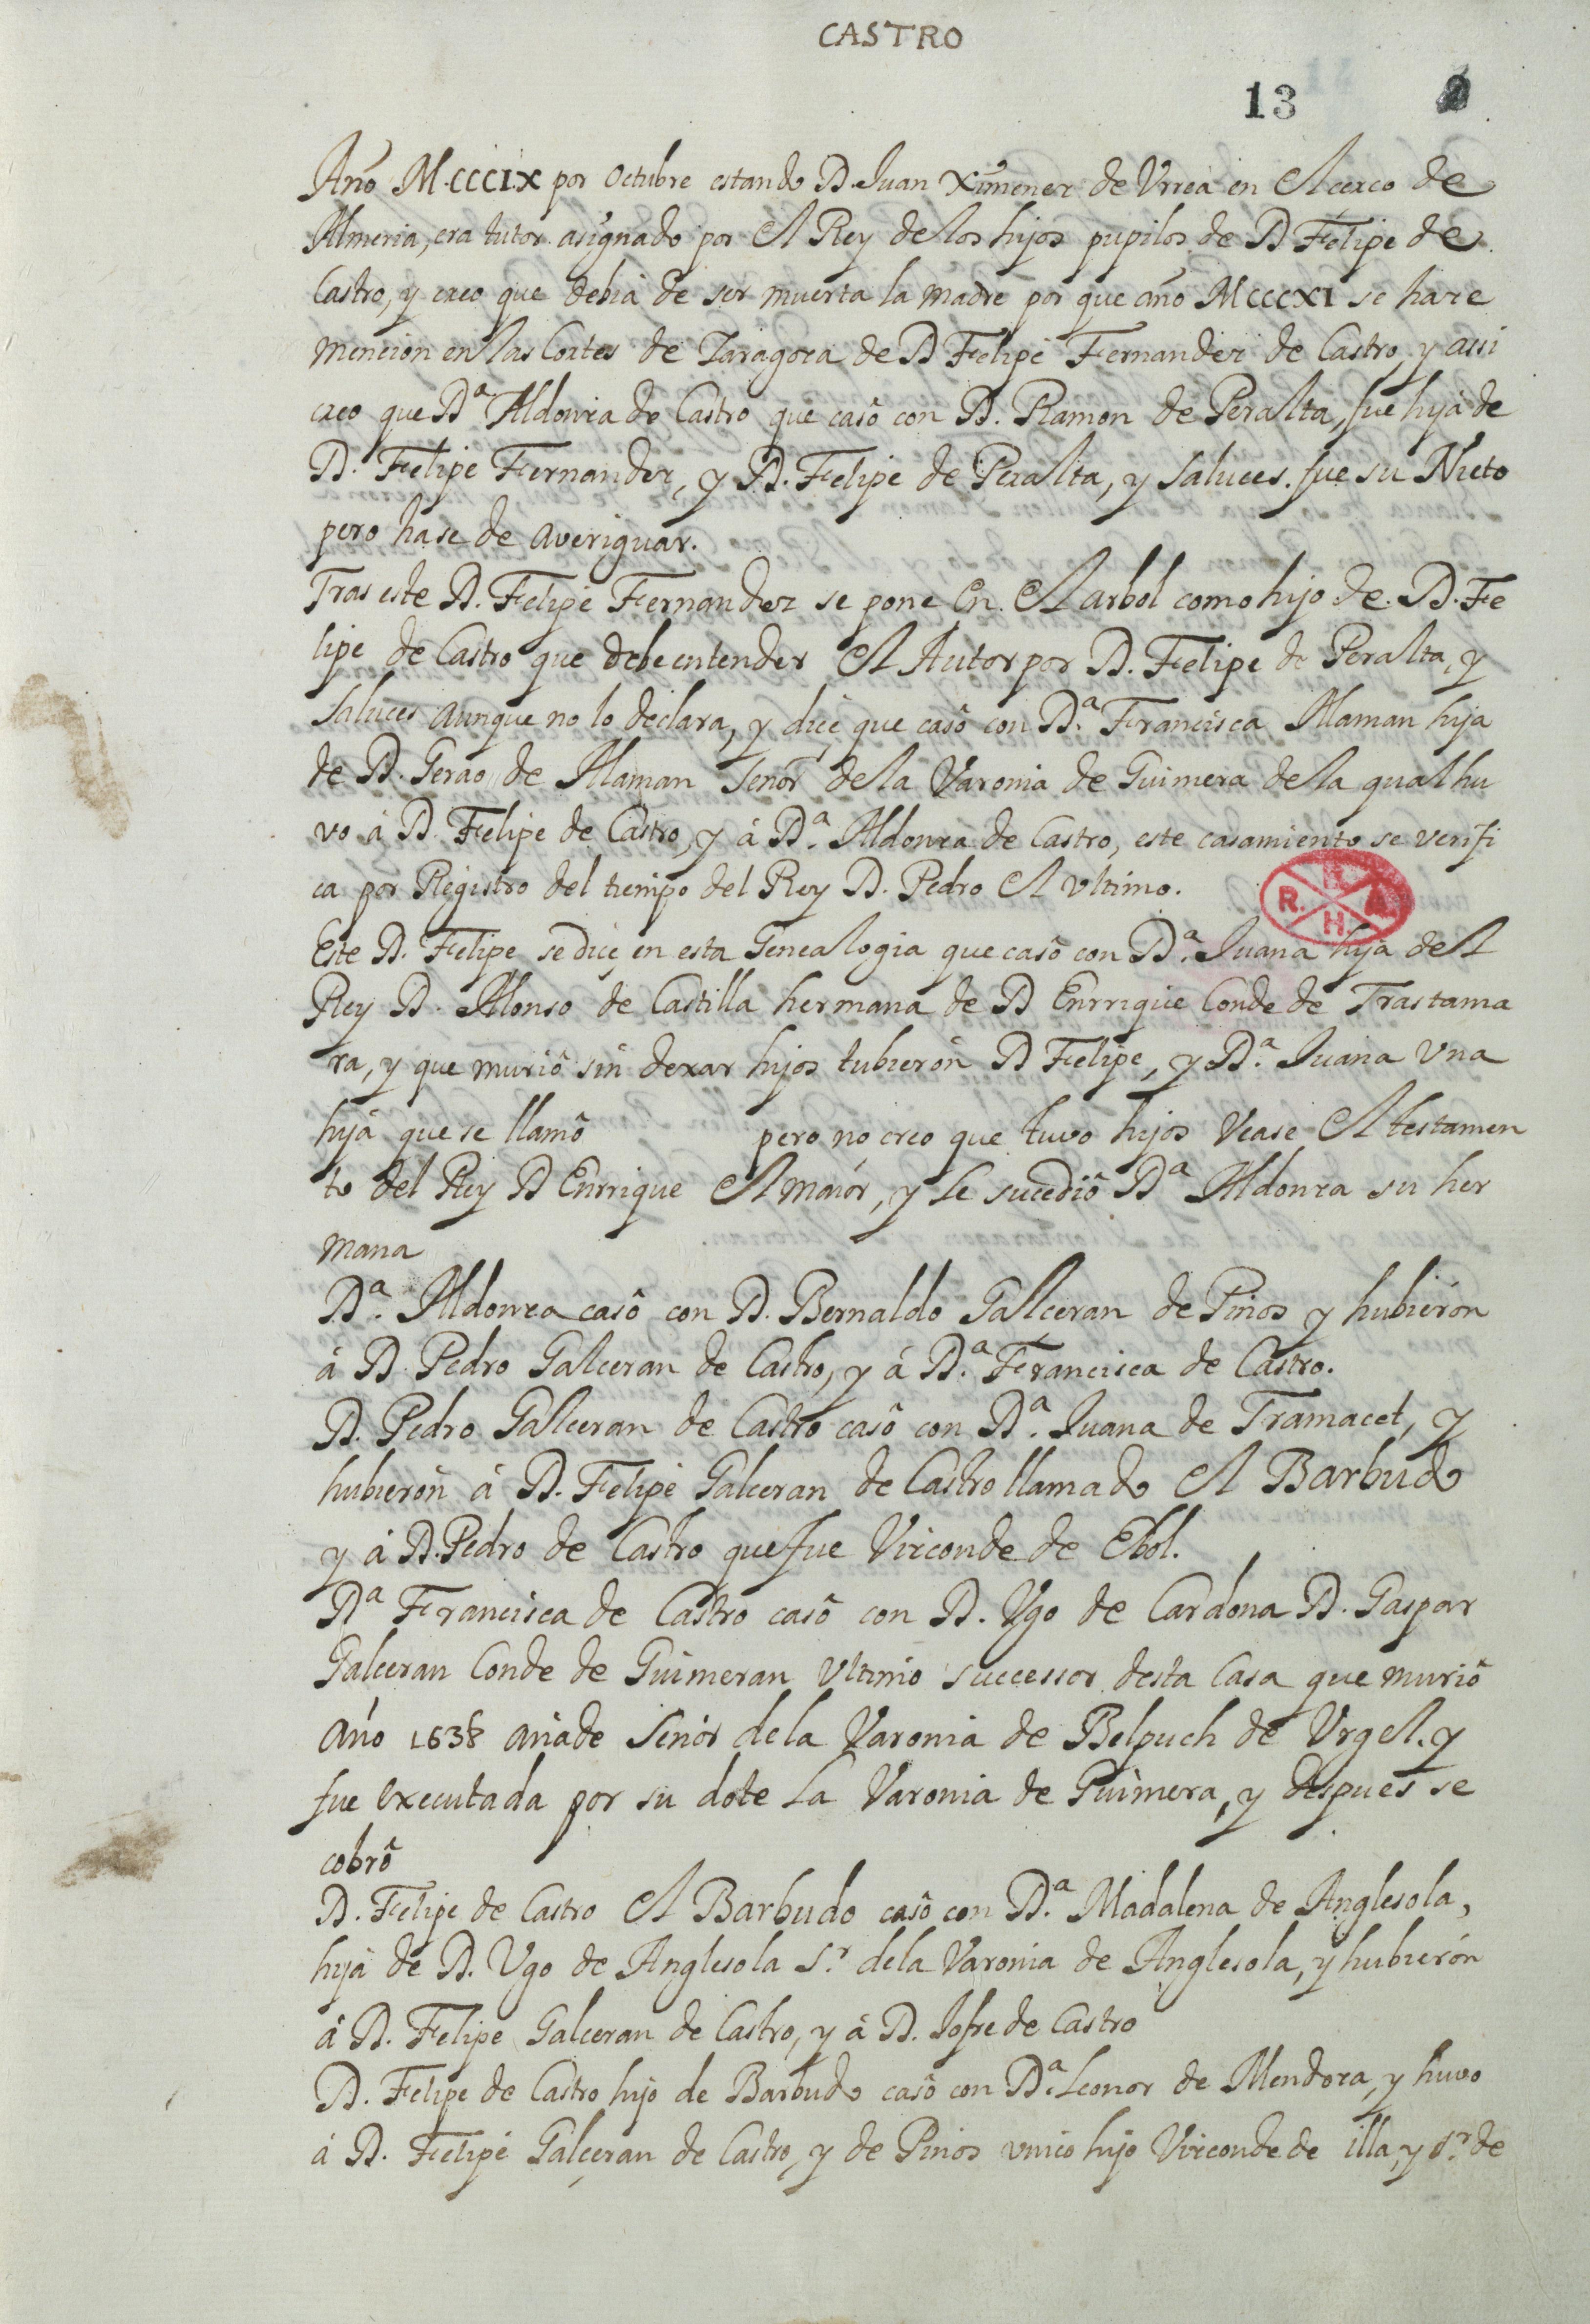 CASTRO
13
Año M.CCCIX por Octubre estando D. Juan Ximenez de Vrrea en el cerco de
Almeria, era tutor asignado por el Rey de los hijos pupilos de D Felipe de
Castro, y creo que debia de ser muerta la madre por que año MCCCXI se haze
mencion en las Cortes de Zaragoza de D Felipe Fernandez de Castro, y assi
creo que D.ª Aldonza de Castro que casò con D. Ramon de Peralta, fue hija de
D. Felipe Fernandez, y D. Felipe de Peralta, y Saluces fue su Nieto
pero hase de averiguar.
Tras este D. Felipe Fernandez se pone en el arbol como hijo de D. Fe
lipe de Castro que debe entender el Autor por D. Felipe de Peralta, y
Saluces aunque no lo declara, y dice que casò con D.ª Francisca Alaman hija
de D. Gerao de Alaman Señor de la Varonia de Guimera de la qual hu
vo á D. Felipe de Castro, y á D.ª Aldonza de Castro, este casamiento se verifi
ca por Registro del tiempo del Rey D. Pedro el vltimo.
R. B. A. H.
Este D. Felipe se dice en esta Genealogia que casò con D.ª Juana hija del
Rey D. Alonso de Castilla hermana de D Enrrique Conde de Trastama
ra, y que muriò sin dexar hijos tubieron D Felipe, y D.ª Juana vna
hija que se llamò pero no creo que tuvo hijos Vease el testamen
to del Rey D Enrrique el maiór, y le sucediò D.ª Aldonza su her
mana
D.ª Aldonza casò con D. Bernaldo Galceran de Pinos y hubieron
á D. Pedro Galceran de Castro, y á D.ª Francisca de Castro.
D. Pedro Galceran de Castro casò con D.ª Juana de Tramacet, y
hubieron á D. Felipe Galceran de Castro llamado el Barbudo
y á D. Pedro de Castro que fue Vizconde de Ebol.
D.ª Francisca de Castro casò con D. Vgo de Cardona D. Gaspar
Galceran Conde de Guimeran vltimo successor desta Casa que muriò
año 1638 añade Señor de la Varonia de Belpuch de Vrgel. y
fue executada por su dote la Varonia de Guimera, y despues se
cobrò
D. Felipe de Castro el Barbudo casò con D.ª Madalena de Anglesola,
hija de D. Vgo de Anglesola S.r de la Varonia de Anglesola, y hubieron
á D. Felipe Galceran de Castro, y á D. Jofre de Castro
D. Felipe de Castro hijo de Barbudo casò con D.ª Leonor de Mendoza, y huvo
á D. Felipe Galçeran de Castro, y de Pinos vnico hijo Vizconde de illa, y S.r de